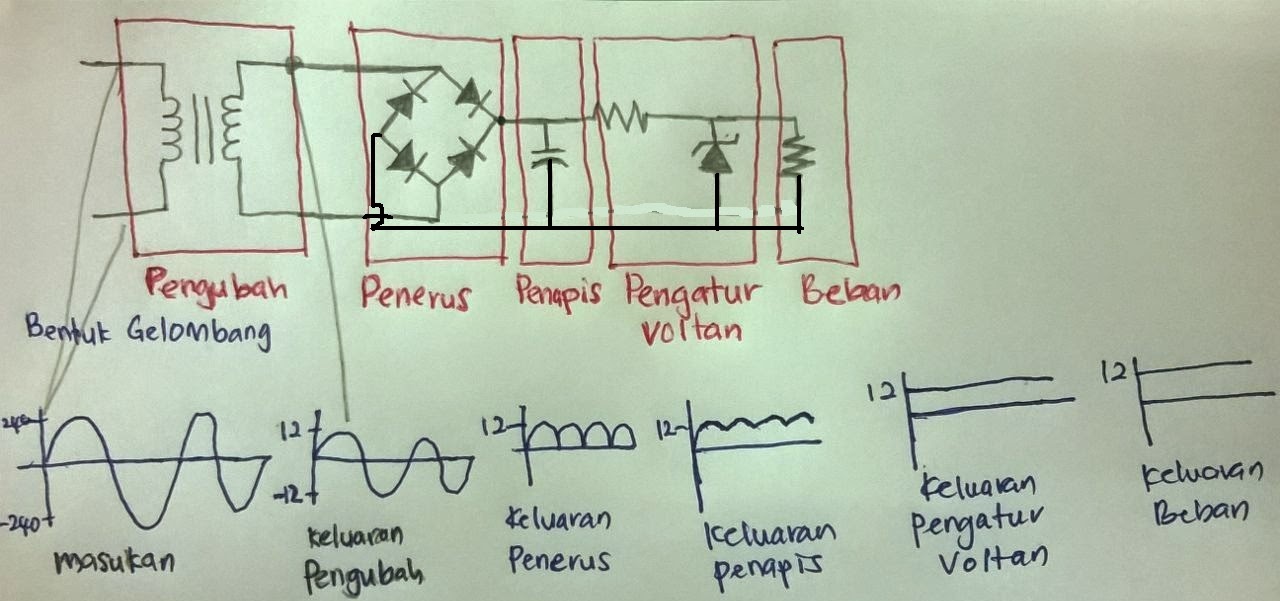 Pengubah
Penerus
Penapis
Pengatur
Voltan
Beban
Bentuk Gelombang
240
-240
masukan
12
-12
Keluaran
Pengubah
12
Keluaran
Penerus
12
Keluaran
penapis
12
Keluaran
Pengatur
Voltan
12
Keluaran
Beban